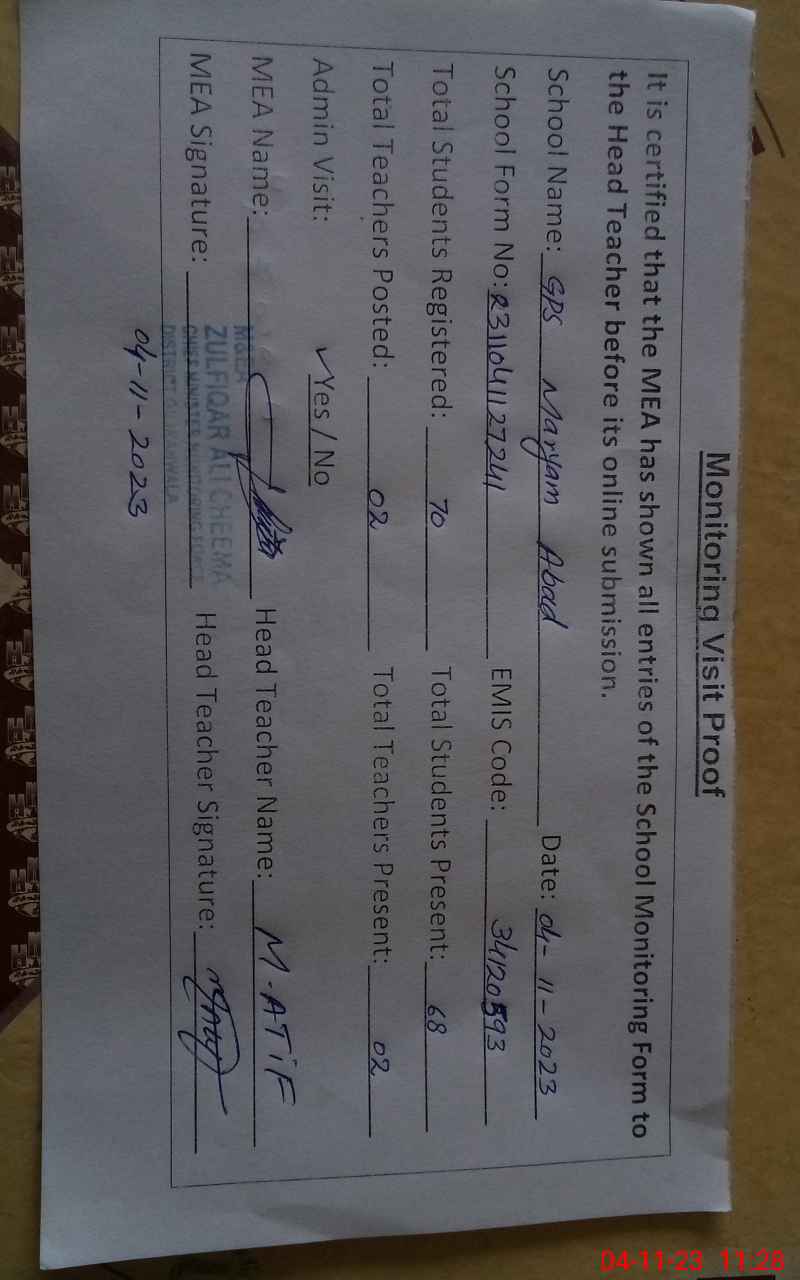 Monitoring Visit Proof
It is certified that the MEA has shown all entries of the School Monitoring Form to
the Head Teacher before its online submission.
School Name: GPS Maryam Abad Date: 04-11-2023
School Form No: R311041127241 EMIS Code: 34120593
Total Students Registered: 70 Total Students Present: 68
Total Teachers Posted: 02 Total Teachers Present: 02
Admin Visit: ✓Yes / No
MEA Name: Head Teacher Name: M-ATiF
ZULFIQAR ALI CHEEMA
MEA Signature: Head Teacher Signature:
CHIEF MINISTER MONITORING FORCE
04-11-2023
04-11-23 11:28